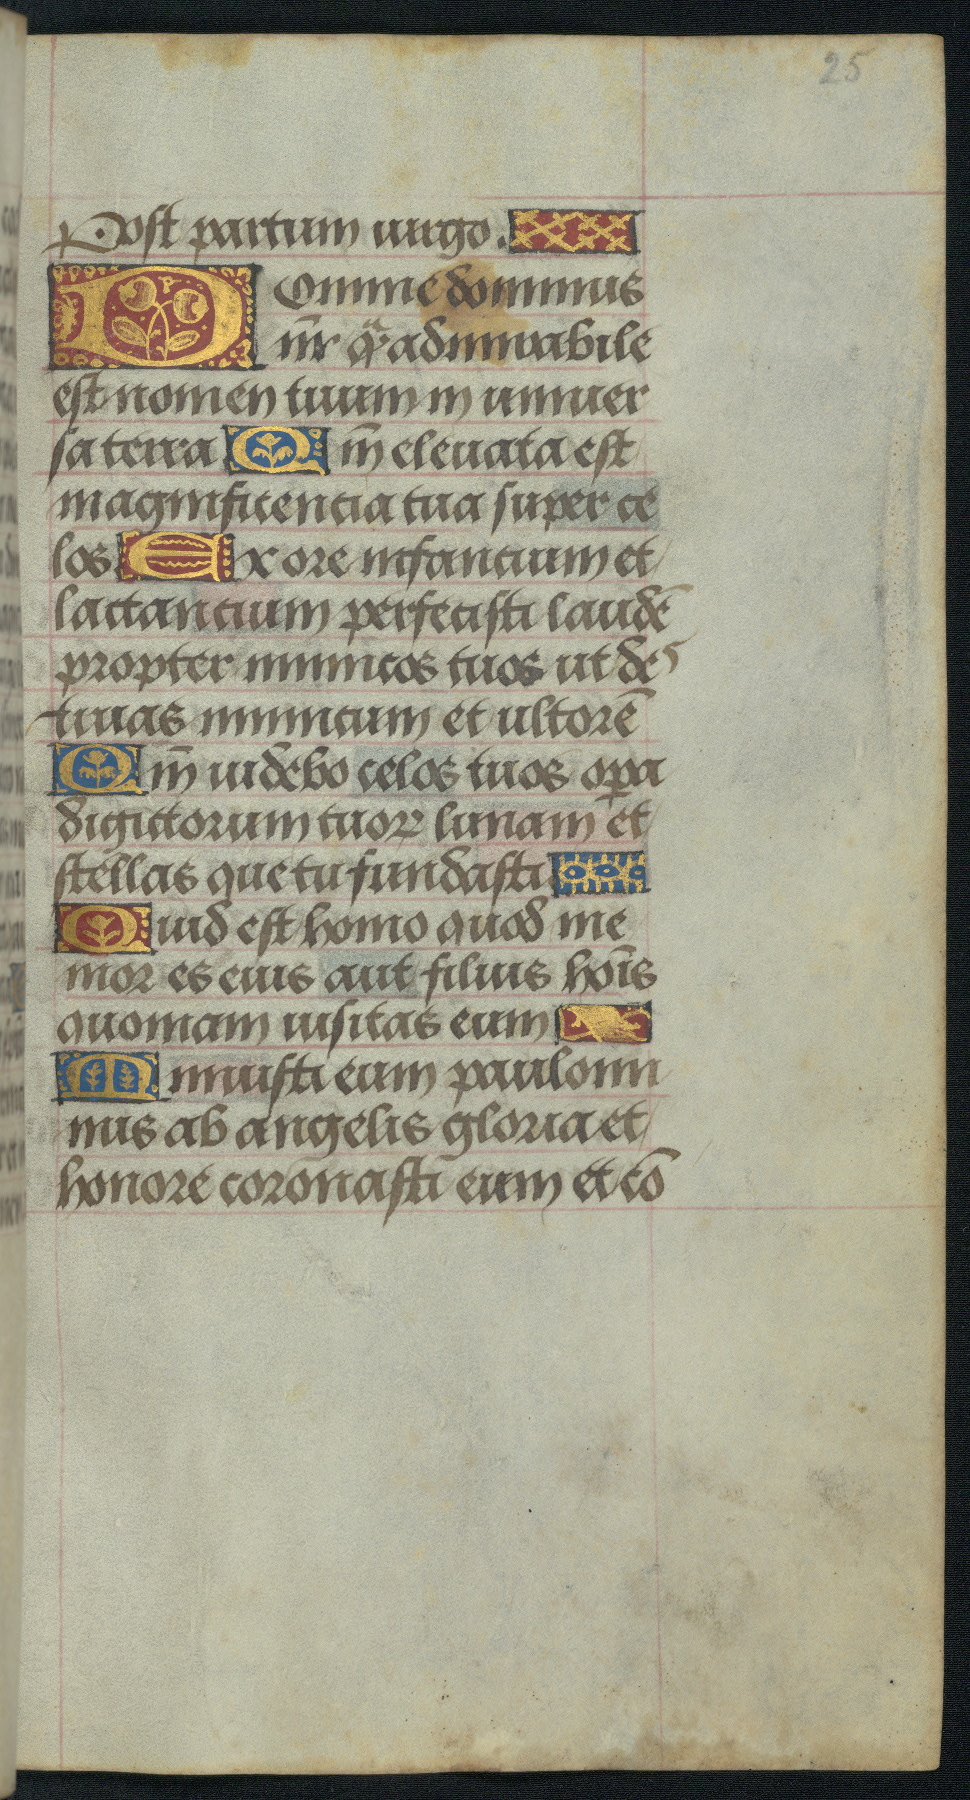 25
Post partum uirgo.
Domine dominus
nr̄ qͣ admirabile
est nomen tuum in uniuer
sa terra Qm̄ eleuata est
magnificencia tua super ce
los Ex ore infancium et
lactancium perfecisti laudē
propter inimicos tuos ut des
truas inimicum et ultorē
Qm̄ uidebo celos tuos oꝑa
digittorum tuoꝝ lunam et
stellas que tu fundasti
Quid est homo quod me
mor es eius aut filius hoīs
quoniam uisitas eum
Minuisti eum paulomi
nus ab angelis gloria et
honore coronasti eum et cō